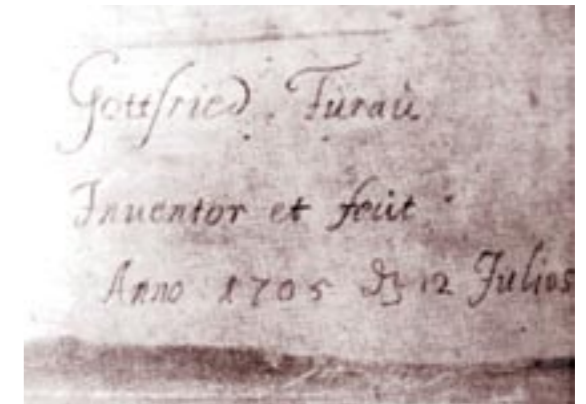 Gottfried. Turaŭ
Inventor et feüt
Anno 1705 12 Julios